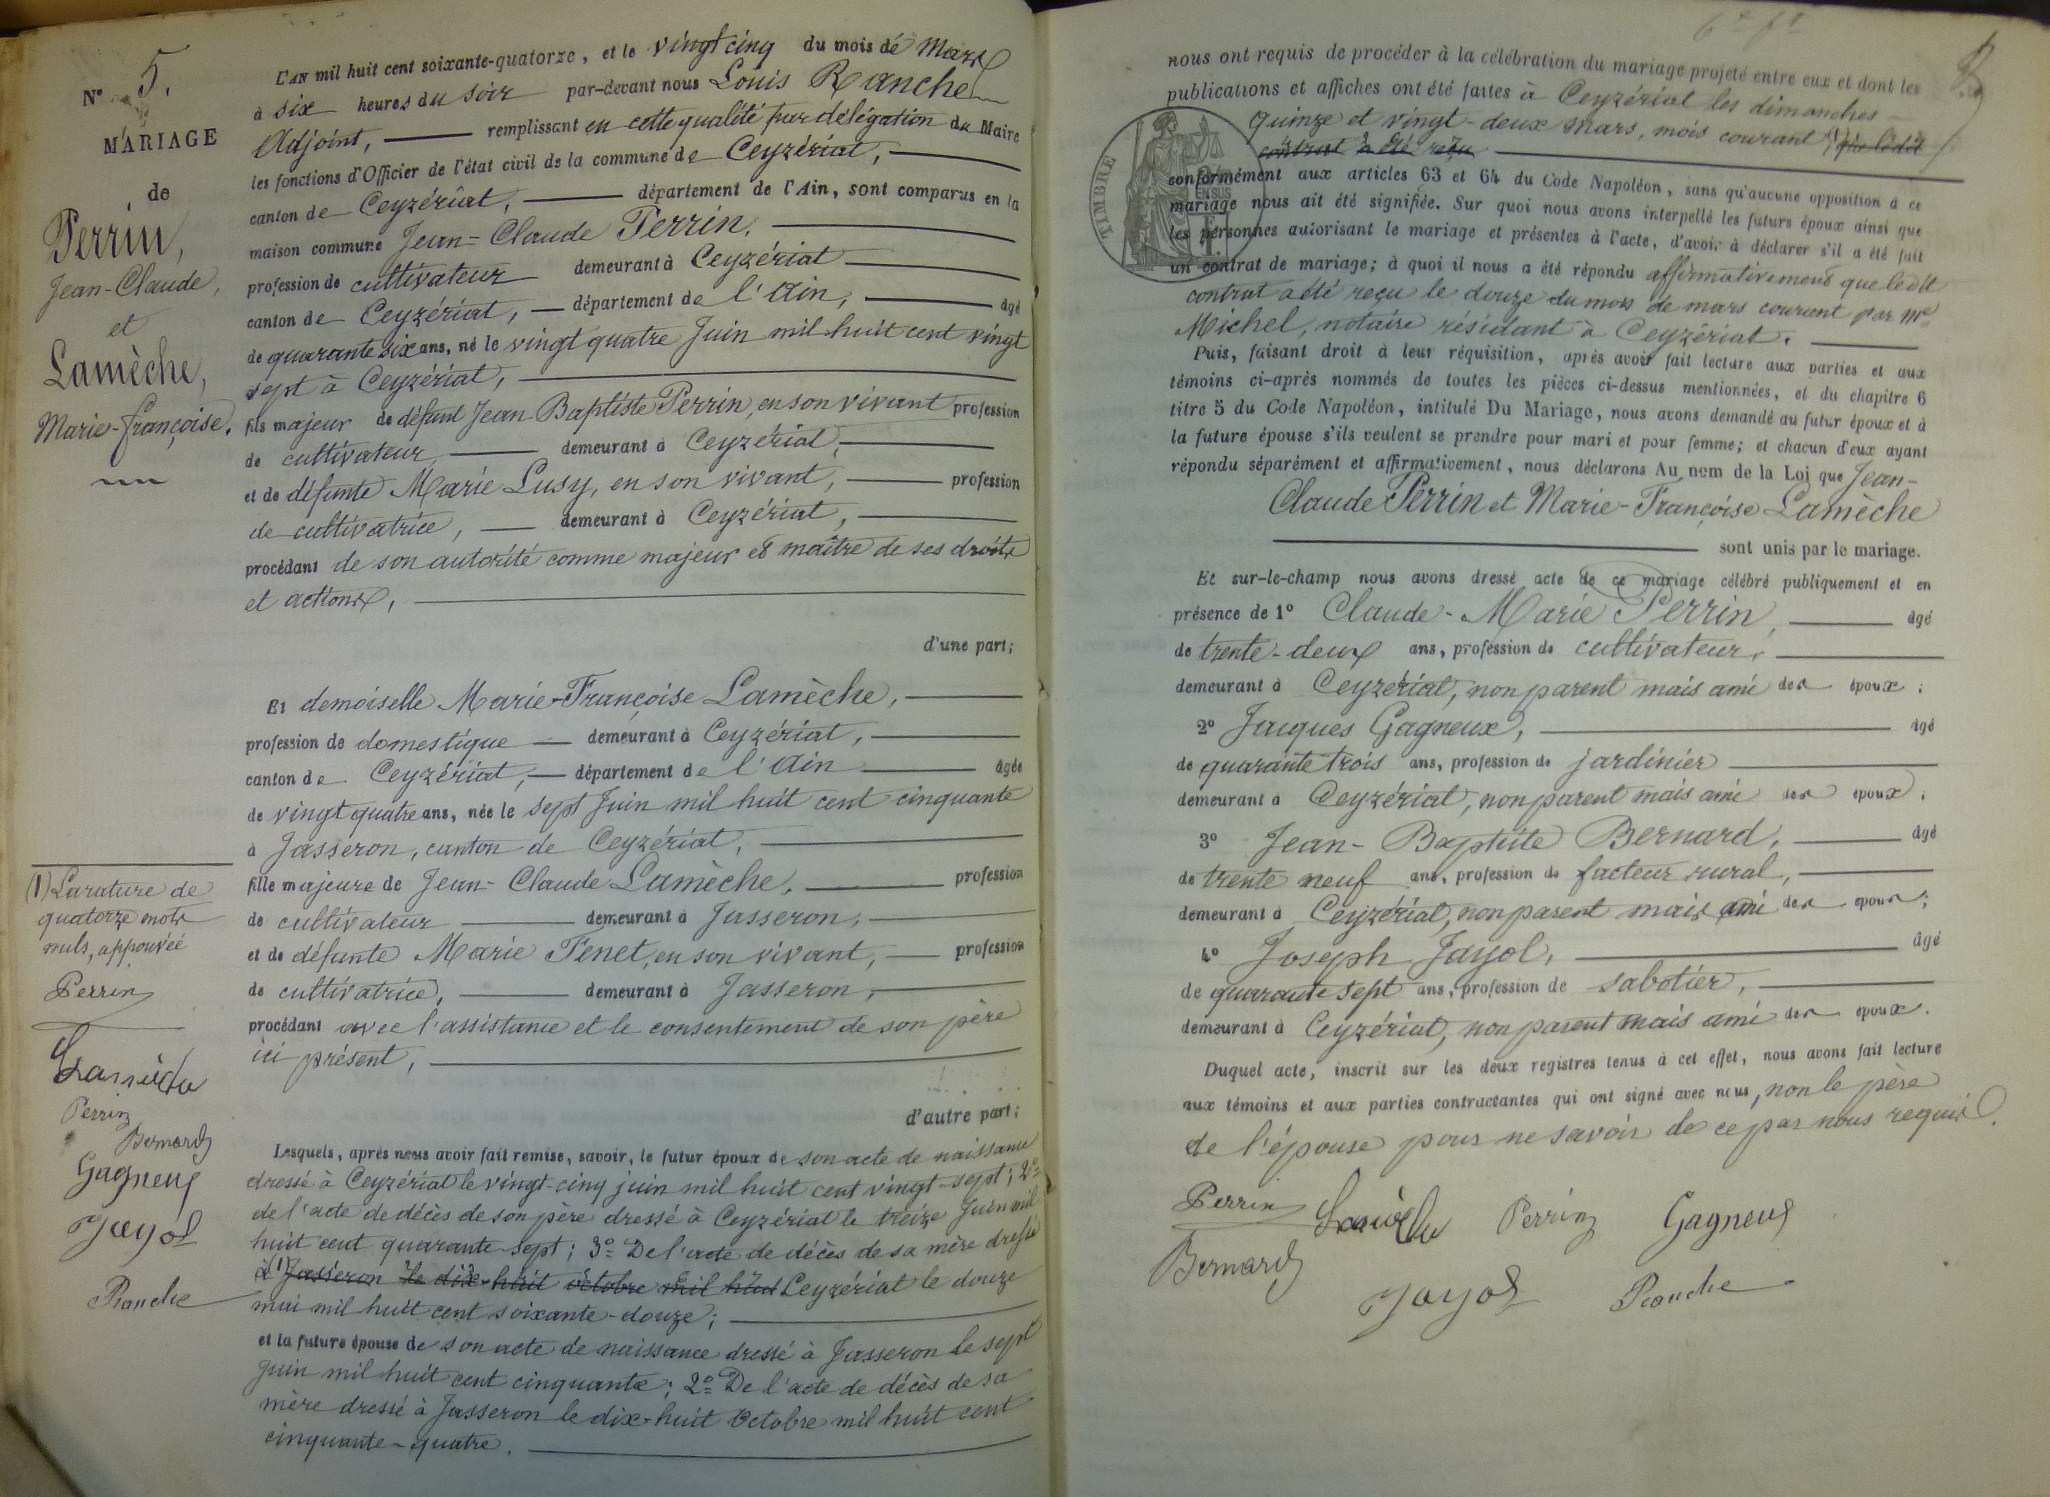 N° 5.
MARIAGE
de
Perrin,
Jean-Claude,
et
Lamèche,
Marie-françoise.
(1) La rature de
quatorze mots
nuls, appouvéé
Perrin
Lamèche
Perrin
Bernard
Gagneux
Jayol
Ranche
L'AN mil huit cent soixante-quatorze, et le vingt cinq du mois de Mars
à six heures du soir par-devant nous Louis Ranche
Adjoint, remplissant en cette qualité par délégation du Maire
les fonctions d'Officier de l'état civil de la commune de Ceyzériat,
canton de Ceyzériat, département de l'Ain, sont comparus en la
maison commune Jean-Claude Perrin,
profession de cultivateur demeurant à Ceyzériat
canton de Ceyzériat, département de l'Ain, âgé
de quarante six ans, né le vingt quatre Juin mil huit cent vingt
sept à Ceyzériat,
fils majeur de défunt Jean Baptiste Perrin, en son vivant profession
de cultivateur demeurant à Ceyzériat,
et de défunte Marie Lusy, en son vivant, profession
de cultivatrice, demeurant à Ceyzériat,
procédant de son autorité comme majeur et maître de ses droits
et actions,
d'une part;
Et demoiselle Marie-Françoise Lamèche,
profession de domestique demeurant à Ceyzériat,
canton de Ceyzériat, département de l'Ain âgée
de vingt quatre ans, née le sept Juin mil huit cent cinquante
à Jasseron, canton de Ceyzériat,
fille majeure de Jean-Claude Lamèche, profession
de cultivateur demeurant à Jasseron,
et de défunte Marie Fenet, en son vivant, profession
de cultivatrice, demeurant à Jasseron,
procédant avec l'assistance et le consentement de son père
ici présent,
d'autre part;
Lesquels, après nous avoir fait remise, savoir, le futur époux de son acte de naissance
dressé à Ceyzériat le vingt-cinq juin mil huit cent vingt-sept; 2°
de l'acte de décès de son père dressé à Ceyzériat le treize Juin mil
huit cent quarante-sept; 3° De l'acte de décès de sa mère dressé
à (1) Jasseron le dix-huit octobre mil huit Ceyzériat le douze
mai mil huit cent soixante-douze;
et la future épouse de son acte de naissance dressé à Jasseron le sept
Juin mil huit cent cinquante; 2° De l'acte de décès de sa
mère dressé à Jasseron le dix-huit Octobre mil huit cent
cinquante-quatre.
nous ont requis de procéder à la célébration du mariage projeté entre eux et dont les
publications et affiches ont été faites à Ceyzériat les dimanches
quinze et vingt-deux mars, mois courant (1) que ledit
contrat a été reçu
conformément aux articles 63 et 64 du Code Napoléon, sans qu'aucune opposition à ce
mariage nous ait été signifiée. Sur quoi nous avons interpellé les futurs époux ainsi que
les personnes autorisant le mariage et présentes à l'acte, d'avoir à déclarer s'il a été fait
un contrat de mariage; à quoi il nous a été répondu affirmativement que ledit
contrat a été reçu le douze du mois de mars courant par Me
Michel, notaire résidant à Ceyzériat.
Puis, faisant droit à leur réquisition, après avoir fait lecture aux parties et aux
témoins ci-après nommés de toutes les pièces ci-dessus mentionnées, et du chapitre 6
titre 5 du Code Napoléon, intitulé Du Mariage, nous avons demandé au futur époux et à
la future épouse s'ils veulent se prendre pour mari et pour femme; et chacun d'eux ayant
répondu séparément et affirmativement, nous déclarons Au nom de la Loi que Jean-
Claude Perrin et Marie-Françoise Lamèche
sont unis par le mariage.
Et sur-le-champ nous avons dressé acte de ce mariage célébré publiquement et en
présence de 1° Claude-Marie Perrin, âgé
de trente-deux ans, profession de cultivateur,
demeurant à Ceyzériat, non parent mais ami des époux;
2° Jacques Gagneux, âgé
de quarante trois ans, profession de jardinier
demeurant à Ceyzériat, non parent mais ami des époux;
3° Jean-Baptiste Bernard, âgé
de trente neuf ans, profession de facteur rural,
demeurant à Ceyzériat, non parent mais ami des époux;
4° Joseph Jayol, âgé
de quarante sept ans, profession de sabotier,
demeurant à Ceyzériat, non parent mais ami des époux.
Duquel acte, inscrit sur les deux registres tenus à cet effet, nous avons fait lecture
aux témoins et aux parties contractantes qui ont signé avec nous, non le père
de l'épouse pour ne savoir de ce par nous requis.
Perrin Lamèche Perrin Gagneux
Bernard Jayol Ranche
TIMBRE